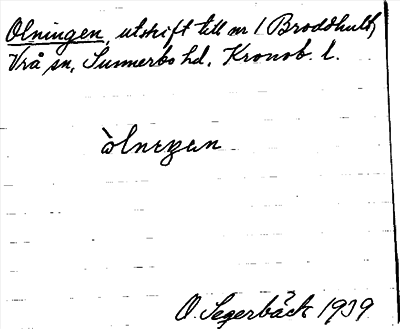 Olningen, utskift till nr 1 Broddhult,
Vrå sn, Sunnerbo hd. Kronob. l.
òlnıŋən
O. Segerbäck 1939